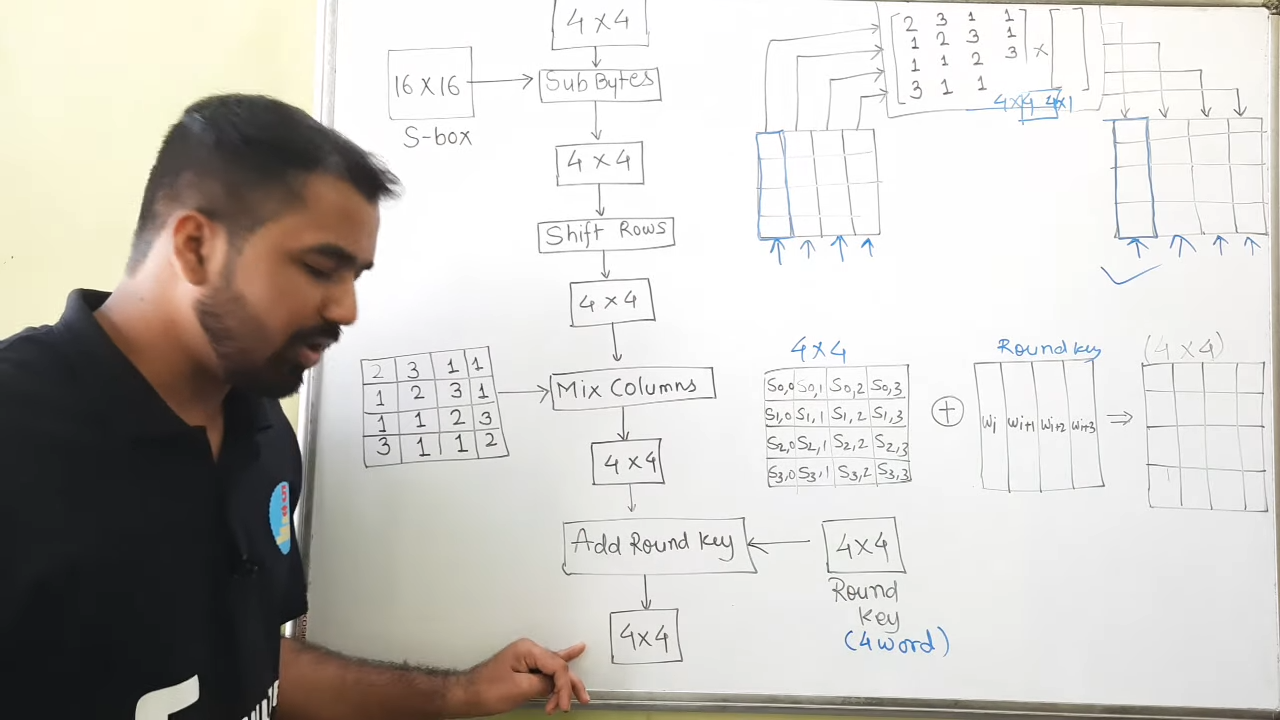 4 x 4
16 x 16
S-box
Sub Bytes
4 x 4
Shift Rows
4 x 4
2 3 1 1
1 2 3 1
1 1 2 3
3 1 1 2
Mix Columns
4 x 4
Add Round Key
4x4
Round
Key
(4 word)
4x4
2 3 1 1
1 2 3 1
1 1 2 3
3 1 1
x
4x4 4x1
4 x 4
S0,0 S0,1 S0,2 S0,3
S1,0 S1,1 S1,2 S1,3
S2,0 S2,1 S2,2 S2,3
S3,0 S3,1 S3,2 S3,3
+
Round key
wi wi+1 wi+2 wi+3
⇒
(4 x 4)